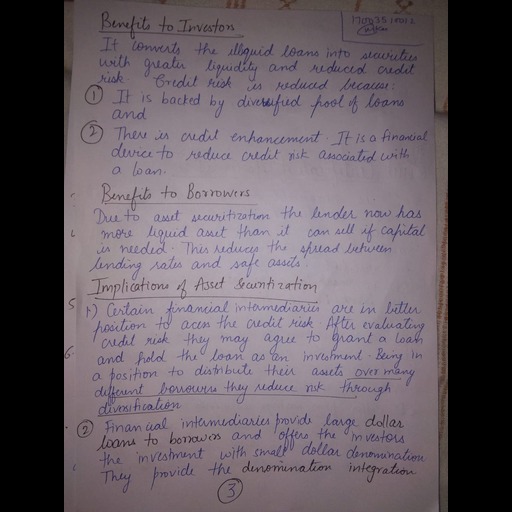 Benefits to Investors
It converts the illiquid loans into securities
with greater liquidity and reduced credit
risk. Credit risk is reduced because:
① It is backed by diversified pool of loans
and
② There is credit enhancement. It is a financial
device to reduce credit risk associated with
a loan.
Benefits to Borrowers
Due to asset securitization the lender now has
more liquid asset than it can sell if capital
is needed. This reduces the spread between
lending rates and safe assets.
Implications of Asset Securitization
1) Certain financial intermediaries are in better
position to acess the credit risk. After evaluating
credit risk they may agree to grant a loan
and hold the loan as an investment. Being in
a position to distribute their assets over many
different borrowers they reduce risk through
diversification
② Financial intermediaries provide large dollar
loans to borrowers and offers the investors
the investment with small dollar denomination
They provide the denomination integration
③